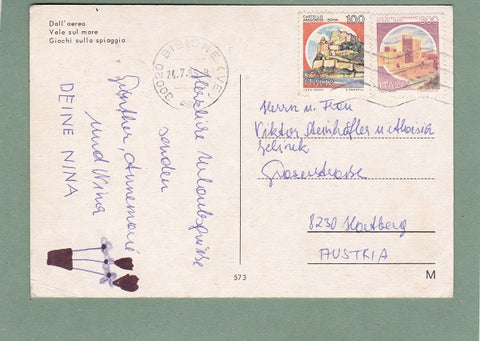 Dall'aereo
Vele sul mare
Giochi sulla spiaggia
30020 BIBIONE (VE)
24.7.
CASTELLO
ARAGONESE ISCHIA
100
ITALIA
Herzliche Urlaubsgrüsse
senden
Günther, Annemarie
und Nina
DEINE NINA
Herrn u. Frau
Viktor
Jelinek
8230 Hartberg
AUSTRIA
573
M